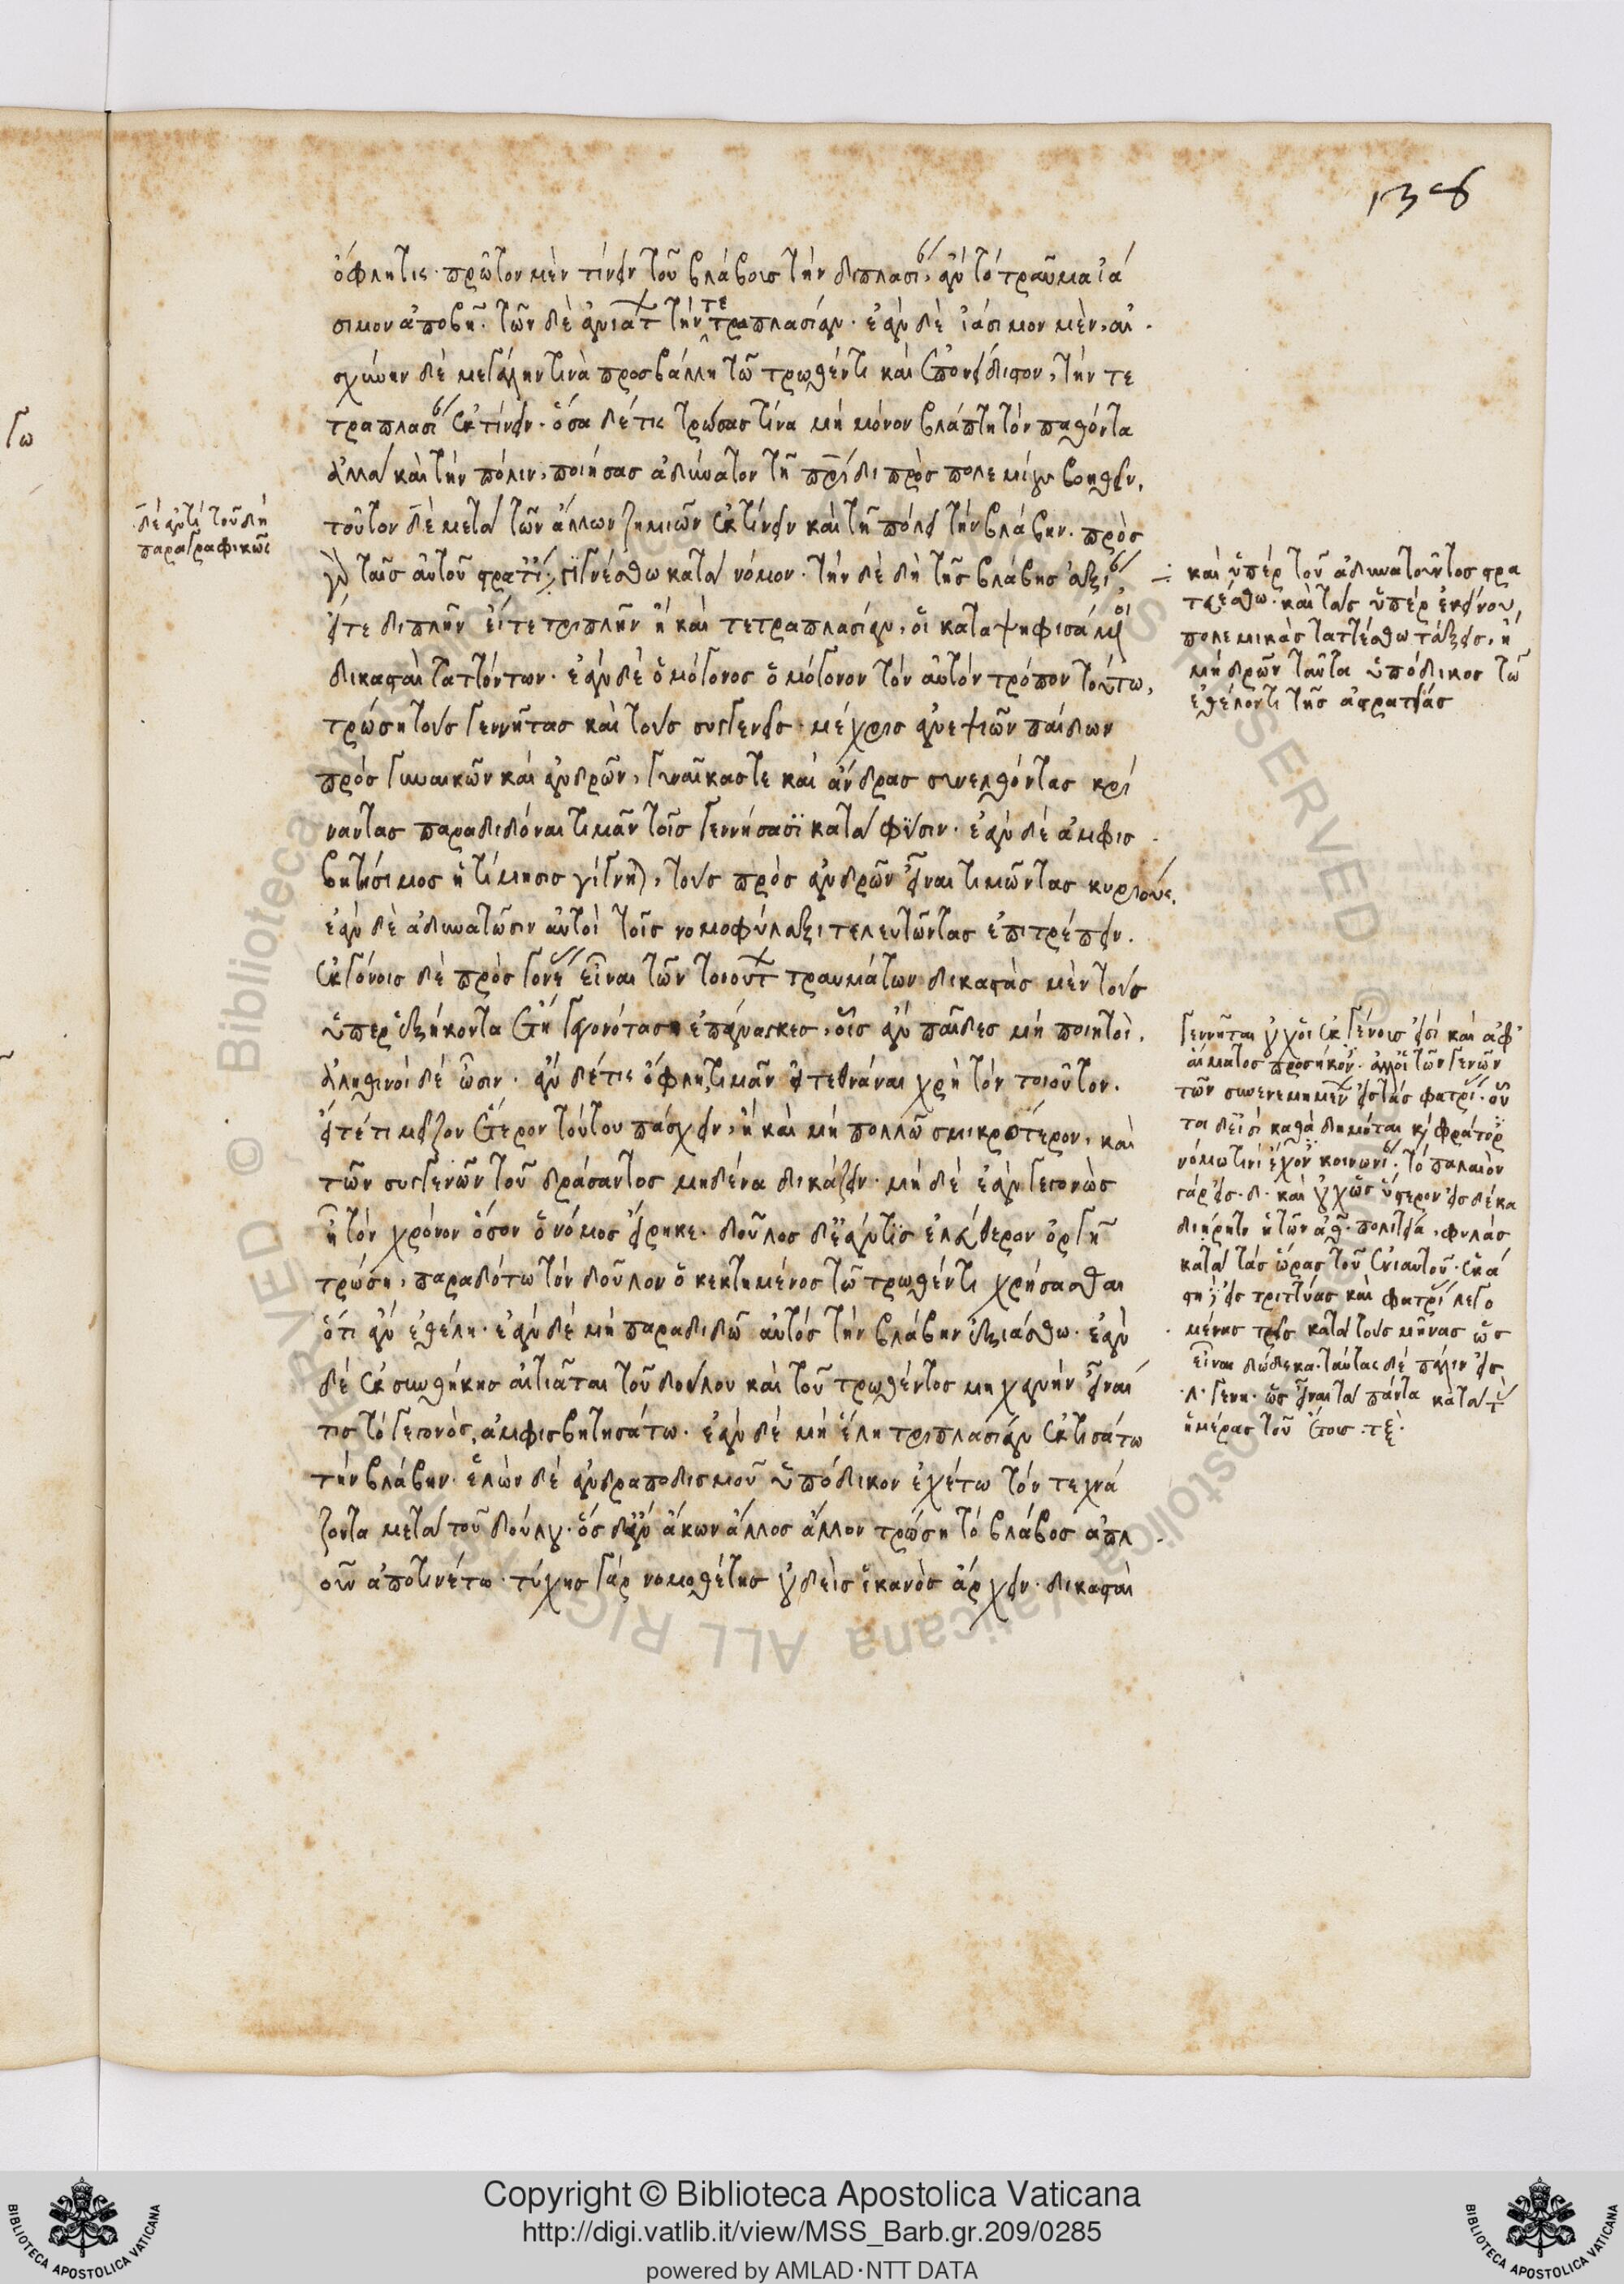 138
ὄφλῃ τις· πρῶτον μὲν τίνειν τοῦ βλάβους τὴν διπλασίαν, ἂν τὸ τραῦμα ἰά
σιμον ἀποβῇ. τῶν δὲ ἀνιάτων τὴν τετραπλασίαν. ἐὰν δὲ ἰάσιμον μὲν, αἰ
σχύνην δὲ μεγάλην τινὰ προσβάλλῃ τῷ τρωθέντι καὶ ἐπονείδιστον, τὴν τε
τραπλασίαν ἐκτίνειν. ὅσα δέ τις τρώσας τινα μὴ μόνον βλάπτῃ τὸν παθόντα
ἀλλὰ καὶ τὴν πόλιν, ποιήσας ἀδύνατον τῇ πρίδι πρὸς πολεμίους βοηθεῖν,
τοῦτον δὲ μετὰ τῶν ἄλλων ζημιῶν ἐκτίνειν καὶ τῇ πόλει τὴν βλάβην. πρὸς
γὰρ ταῖς αὐτοῦ στρατείαις
γιγνέσθω κατὰ νόμον. τὴν δὲ δὴ τῆς βλάβης ἀξίαν
εἴτε διπλῆν εἴτε τριπλῆν ἢ καὶ τετραπλασίαν, οἱ καταψηφισάμενοι
δικασταὶ ταττόντων. ἐὰν δὲ ὁμόγονος ὁμόγονον τὸν αὐτὸν τρόπον τούτῳ,
τρώσῃ τοὺς γεννῆτας καὶ τοὺς συγγενεῖς μέχρις ἀνεψιῶν παίδων
πρὸς γυναικῶν καὶ ἀνδρῶν, γυναῖκας τε καὶ ἄνδρας συνελθόντας κρί
ναντας παραδιδόναι τιμᾶν τοῖς γεννήσασι κατὰ φύσιν. ἐὰν δὲ ἀμφισ
βητήσιμος ἡ τίμησις γίγνηται, τοὺς πρὸς ἀνδρῶν εἶναι τιμῶντας κυρίους.
ἐὰν δὲ ἀδυνατῶσιν αὐτοὶ τοῖς νομοφύλαξι τελευτῶντας ἐπιτρέπειν.
ἐκγόνοις δὲ πρὸς γονέας εἶναι τῶν τοιούτων τραυμάτων δικαστὰς μὲν τοὺς
ὑπὲρ ἑξήκοντα ἔτη γεγονότας ἐπάναγκες, οἷς ἂν παῖδες μὴ ποιητοὶ.
ἀληθινοὶ δὲ ὦσιν. ἂν δέ τις ὄφλῃ, τιμᾶν εἰ τεθνάναι χρὴ τὸν τοιοῦτον.
εἴτέ τι μεῖζον ἕτερον τούτου πάσχειν, ἢ καὶ μὴ πολλῷ σμικρότερον, καὶ
τῶν συγγενῶν τοῦ δράσαντος μηδένα δικάζειν. μὴ δὲ ἐὰν γεγονὼς
ᾖ τὸν χρόνον ὅσον ὁ νόμος εἴρηκε. δοῦλος δ' ἐάν τις ἐλεύθερον ὀργῇ
τρώσῃ, παραδότω τὸν δοῦλον ὁ κεκτημένος τῷ τρωθέντι χρήσασθαι
ὅτι ἂν ἐθέλῃ. ἐὰν δὲ μὴ παραδιδῷ αὐτὸς τὴν βλάβην ἐξιάσθω. ἐὰν
δὲ ἐκ συνθήκης αἰτιᾶται τοῦ δούλου καὶ τοῦ τρωθέντος μηχανὴν εἶναί
τις τὸ γεγονὸς, ἀμφισβητησάτω. ἐὰν δὲ μὴ ἕλῃ τριπλασίαν ἐκτισάτω
τὴν βλάβην. ἑλὼν δὲ ἀνδραποδισμοῦ ὑπόδικον ἐχέτω τὸν τεχνά
ζοντα μετὰ τοῦ δούλου. ὃς δ' ἂν ἄκων ἄλλος ἄλλον τρώσῃ τὸ βλάβος ἁπλ
οῦν ἀποτινέτω. τύχης γὰρ νομοθέτης οὐδεὶς ἱκανὸς ἄρχειν. δικασταὶ
δὲ ἀντὶ τοῦ δὴ
παραγραφικῶς
καὶ ὑπὲρ τοῦ ἀδυνατοῦντος στρα
τευέσθω. καὶ τὰς ὑπὲρ ἐκείνου,
πολεμικὰς ταττέσθω τάξεις, ἢ
μὴ δρῶν ταῦτα ὑπόδικος τῷ
ἐθέλοντι τῆς ἀστρατείας
γεννῆται οὐχ οἱ ἐκ γένους εἰσὶ καὶ ἀφ'
αἵματος προσήκοντες. ἀλλ' οἱ τῶν γενῶν
τῶν συννενεμημένων εἰς τὰς φατρίας. οὗ
τοι δέ εἰσι καθὰ δημόται καὶ φράτορες
νόμῳ τινὶ ἔχοντες κοινωνίαν. τὸ παλαιὸν
γὰρ εἰς .δ. καὶ οὐχ ὡς ὕστερον εἰς δέκα
διῄρητο ἡ τῶν ἀθ. πολιτεία, φυλὰς
κατὰ τὰς ὥρας τοῦ ἐνιαυτοῦ. ἑκά
στη εἰς τριττύας καὶ φατρίας λεγο
μένας τρεῖς κατὰ τοὺς μῆνας ὡς
εἶναι δώδεκα. ταύτας δὲ πάλιν εἰς
.λ. γένη. ὡς εἶναι τὰ πάντα κατὰ τὰς
ἡμέρας τοῦ ἔτους .τξ.
γω
Copyright © Biblioteca Apostolica Vaticana
http://digi.vatlib.it/view/MSS_Barb.gr.209/0285
powered by AMLAD·NTT DATA
BIBLIOTECA APOSTOLICA VATICANA
BIBLIOTECA APOSTOLICA VATICANA